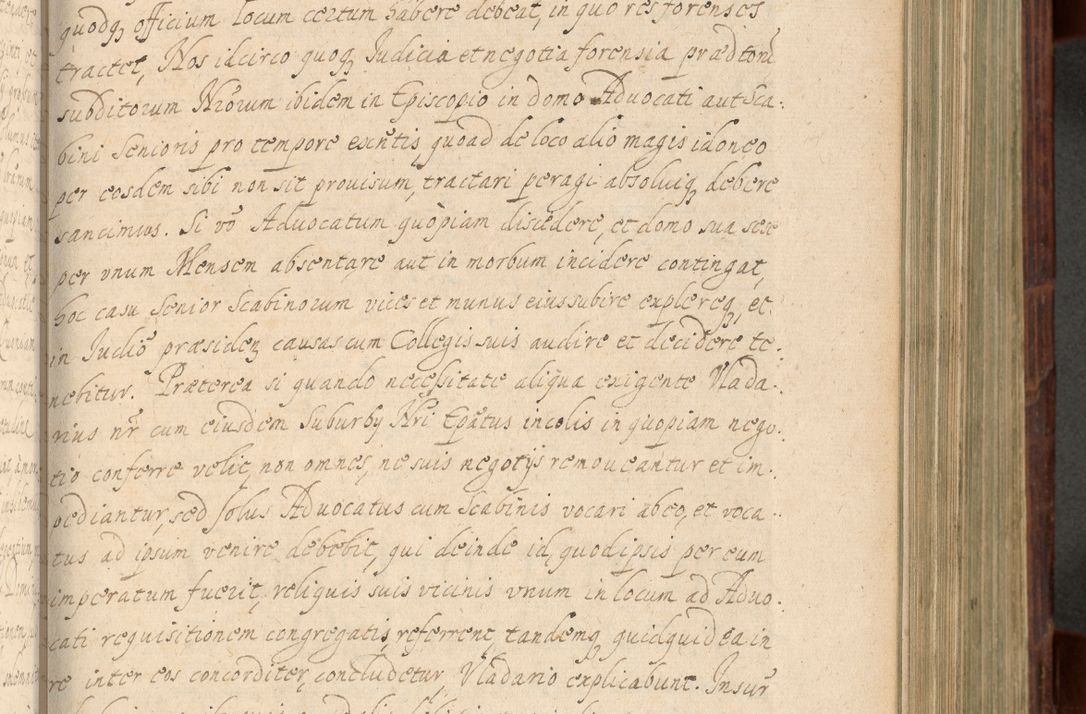 quodq officium locum certum habere debeat, in quo res forenses
tractet, Nos idcirco quoq Judicia et negotia forensia præd tom̃
subditorum Nrõrum ibidem in Episcopio in domo Aduocati aut Sca.
bini Senioris pro tempore exn̄tis, quoad de loco alio magis idoneo
per eosdem sibi non sit prouisum, tractari peragi absoluiq debere
sancimus. Si vō Aduocatum quōpiam discedere, et domo sua sese
per vnum Mensem absentare aut in morbum incidere contingat,
hoc casu Senior Scabinorum vices et munus eius subire explereq, et
in Judiō præsideñ causas cum Collegis suis audire et decidere te.
nebitur. Præterea si quando necessitate aliqua exigente Vlada.
rius nr̃ cum eiusdem Suburby Nri Ep̄atus incolis in quopiam nego.
tio conferre velit, non omnes, ne suis negotys remoueantur et im.
pediantur, sed solus Aduocatus cum Scabinis vocari ab eo, et voca.
tus ad ipsum venire debebit, qui deinde id, quod ipsis per eum
imperatum fuerit, reliquis suis vicinis vnum in locum ad Aduo.
cati requisitionem congregatis, referrent, tandemq quidquid ea in
re inter eos concorditer concludetur Vladario explicabunt. Insup̃